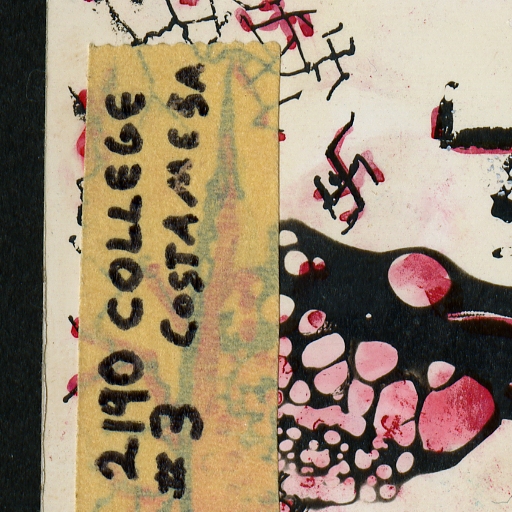 2190 COLLEGE
#3 COSTA MESA